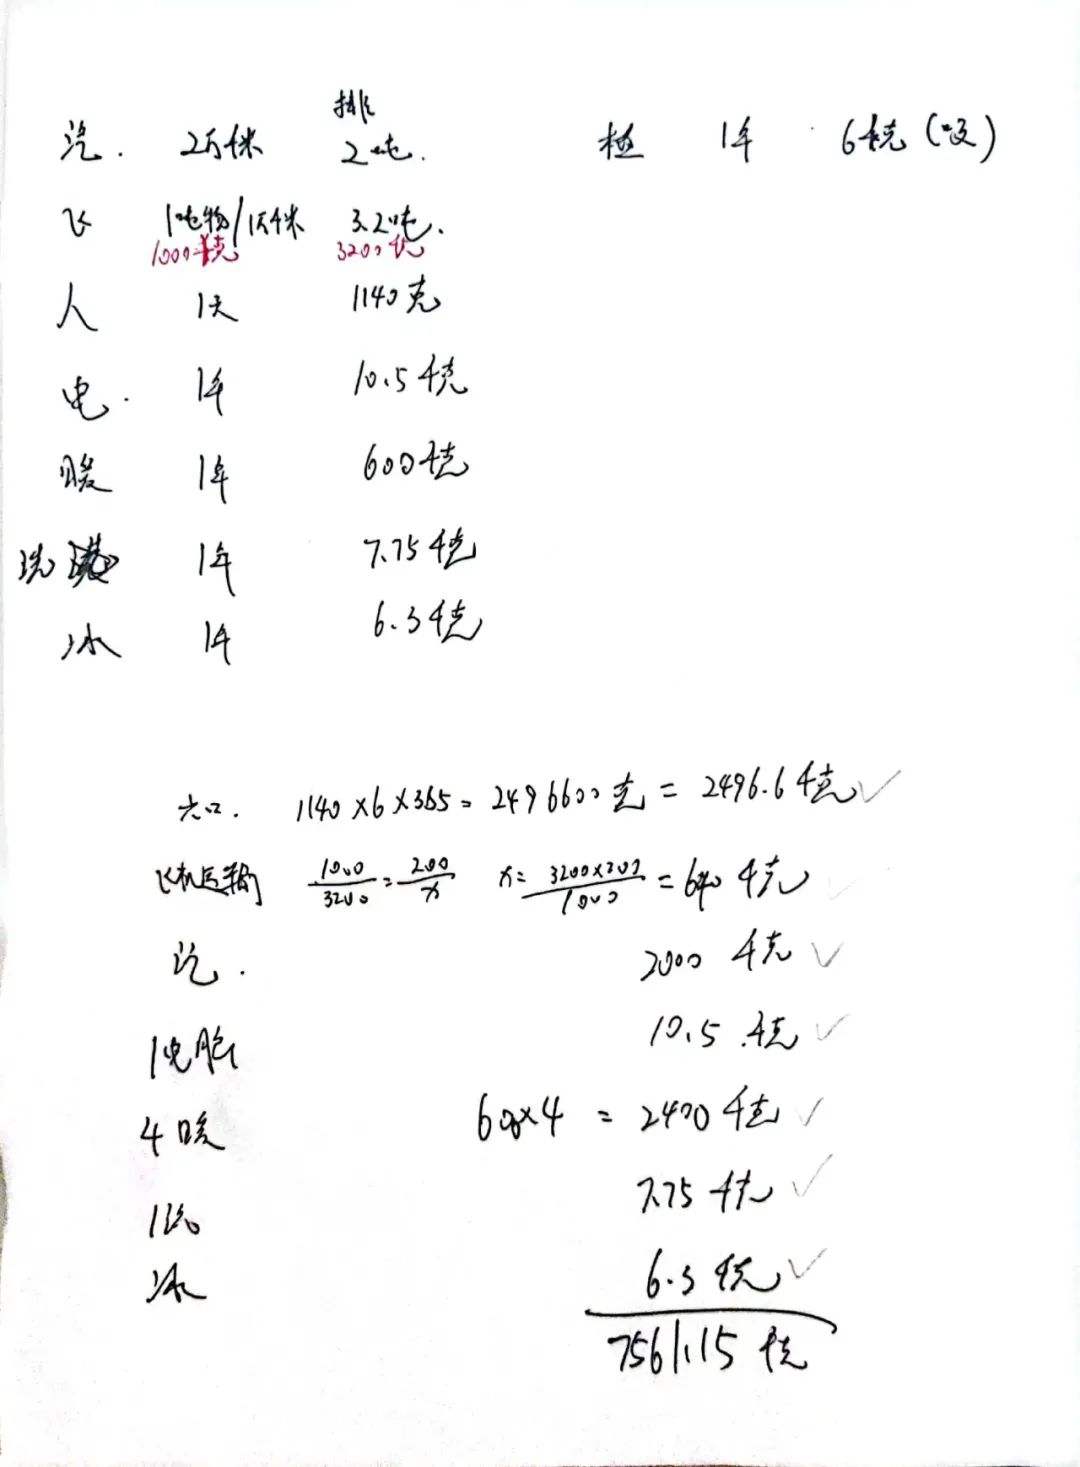 排
汽. 2万千米 2吨. 植 1年 6千克(吸)
飞 1吨物/1万千米 3.2吨.
1000千克 3200千克
人 1天 1140克
电. 1年 10.5千克
暖 1年 600千克
洗 1年 7.75千克
冰 1年 6.3千克
六口. 1140×6×365=2496600克=2496.6千克✓
飞机运输 1000/3200=200/x x=3200×200/1000=640千克
汽. 2000千克✓
1电脑 10.5千克✓
4暖 600×4=2400千克✓
1洗 7.75千克✓
冰 6.3千克✓
7561.15千克